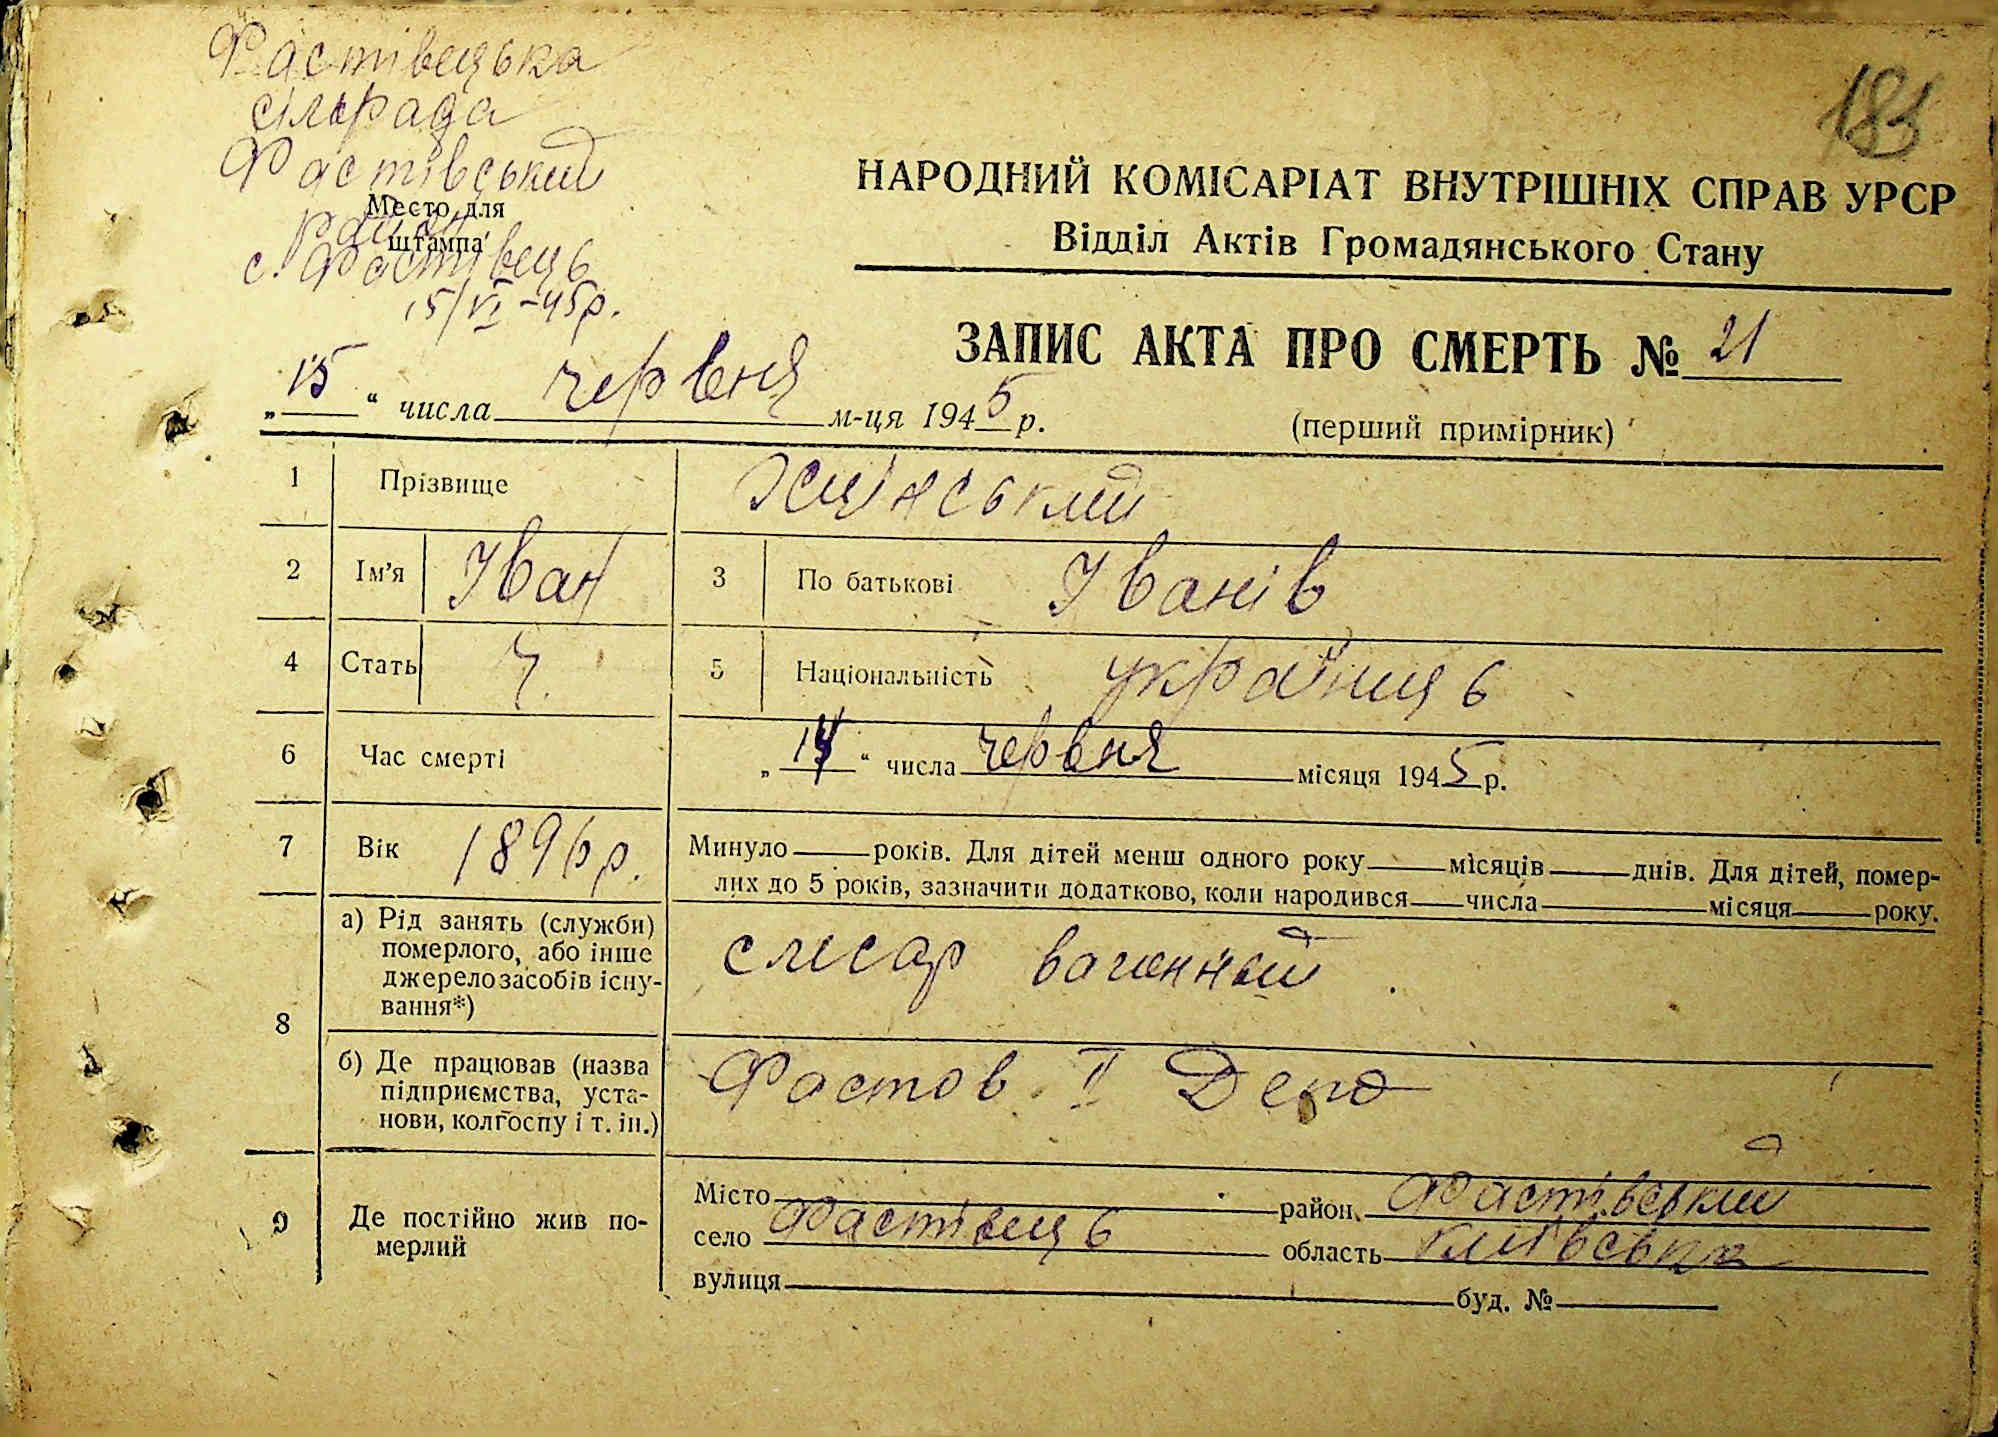 Фастівецька
сільрада
Фастівський
Место для
район
штампа
с. Фастівець
15/VI-45р.
183
НАРОДНИЙ КОМІСАРІАТ ВНУТРІШНІХ СПРАВ УРСР
Відділ Актів Громадянського Стану
ЗАПИС АКТА ПРО СМЕРТЬ № 21
„15“ числа червня м-ця 1945 р.
(перший примірник)
1 Прізвище
2 Ім'я Іван 3 По батькові Іванів
4 Стать Ч. 5 Національність українець
6 Час смерті „14“ числа червня місяця 1945 р.
7 Вік 1896 р. Минуло років. Для дітей менш одного року місяців днів. Для дітей, помер-
лих до 5 років, зазначити додатково, коли народився числа місяця року.
8 а) Рід занять (служби)
померлого, або інше
джерело засобів існу-
вання*)
слюсар вагонний
б) Де працював (назва
підприємства, уста-
нови, колгоспу і т. ін.)
Фастов II Депо
9 Де постійно жив по-
мерлий
Місто район Фастівський
село Фастівець область Київська
вулиця буд. №